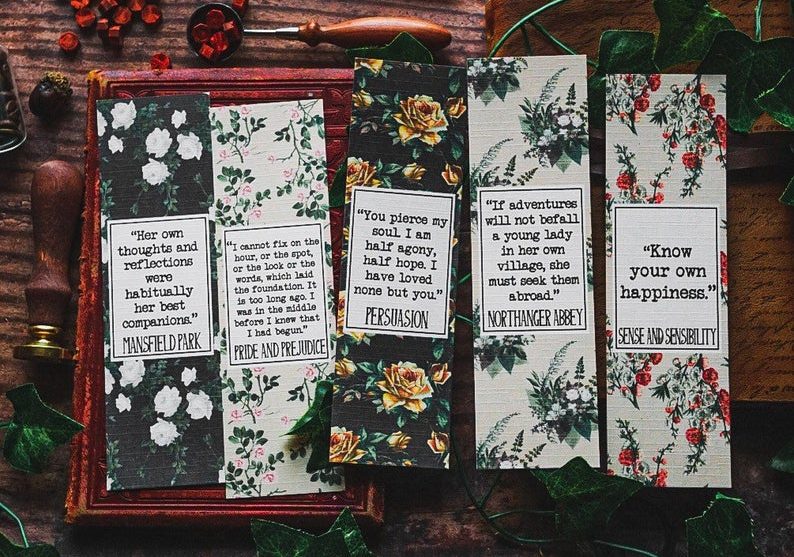 “Her own
thoughts and
reflections
were
habitually
her best
companions.”
MANSFIELD PARK
“I cannot fix on the
hour, or the spot,
or the look or the
words, which laid
the foundation. It
is too long ago. I
was in the middle
before I knew that
I had begun.”
PRIDE AND PREJUDICE
“You pierce my
soul. I am
half agony,
half hope. I
have loved
none but you.”
PERSUASION
“If adventures
will not befall
a young lady
in her own
village, she
must seek them
abroad.”
NORTHANGER ABBEY
“Know
your own
happiness.”
SENSE AND SENSIBILITY